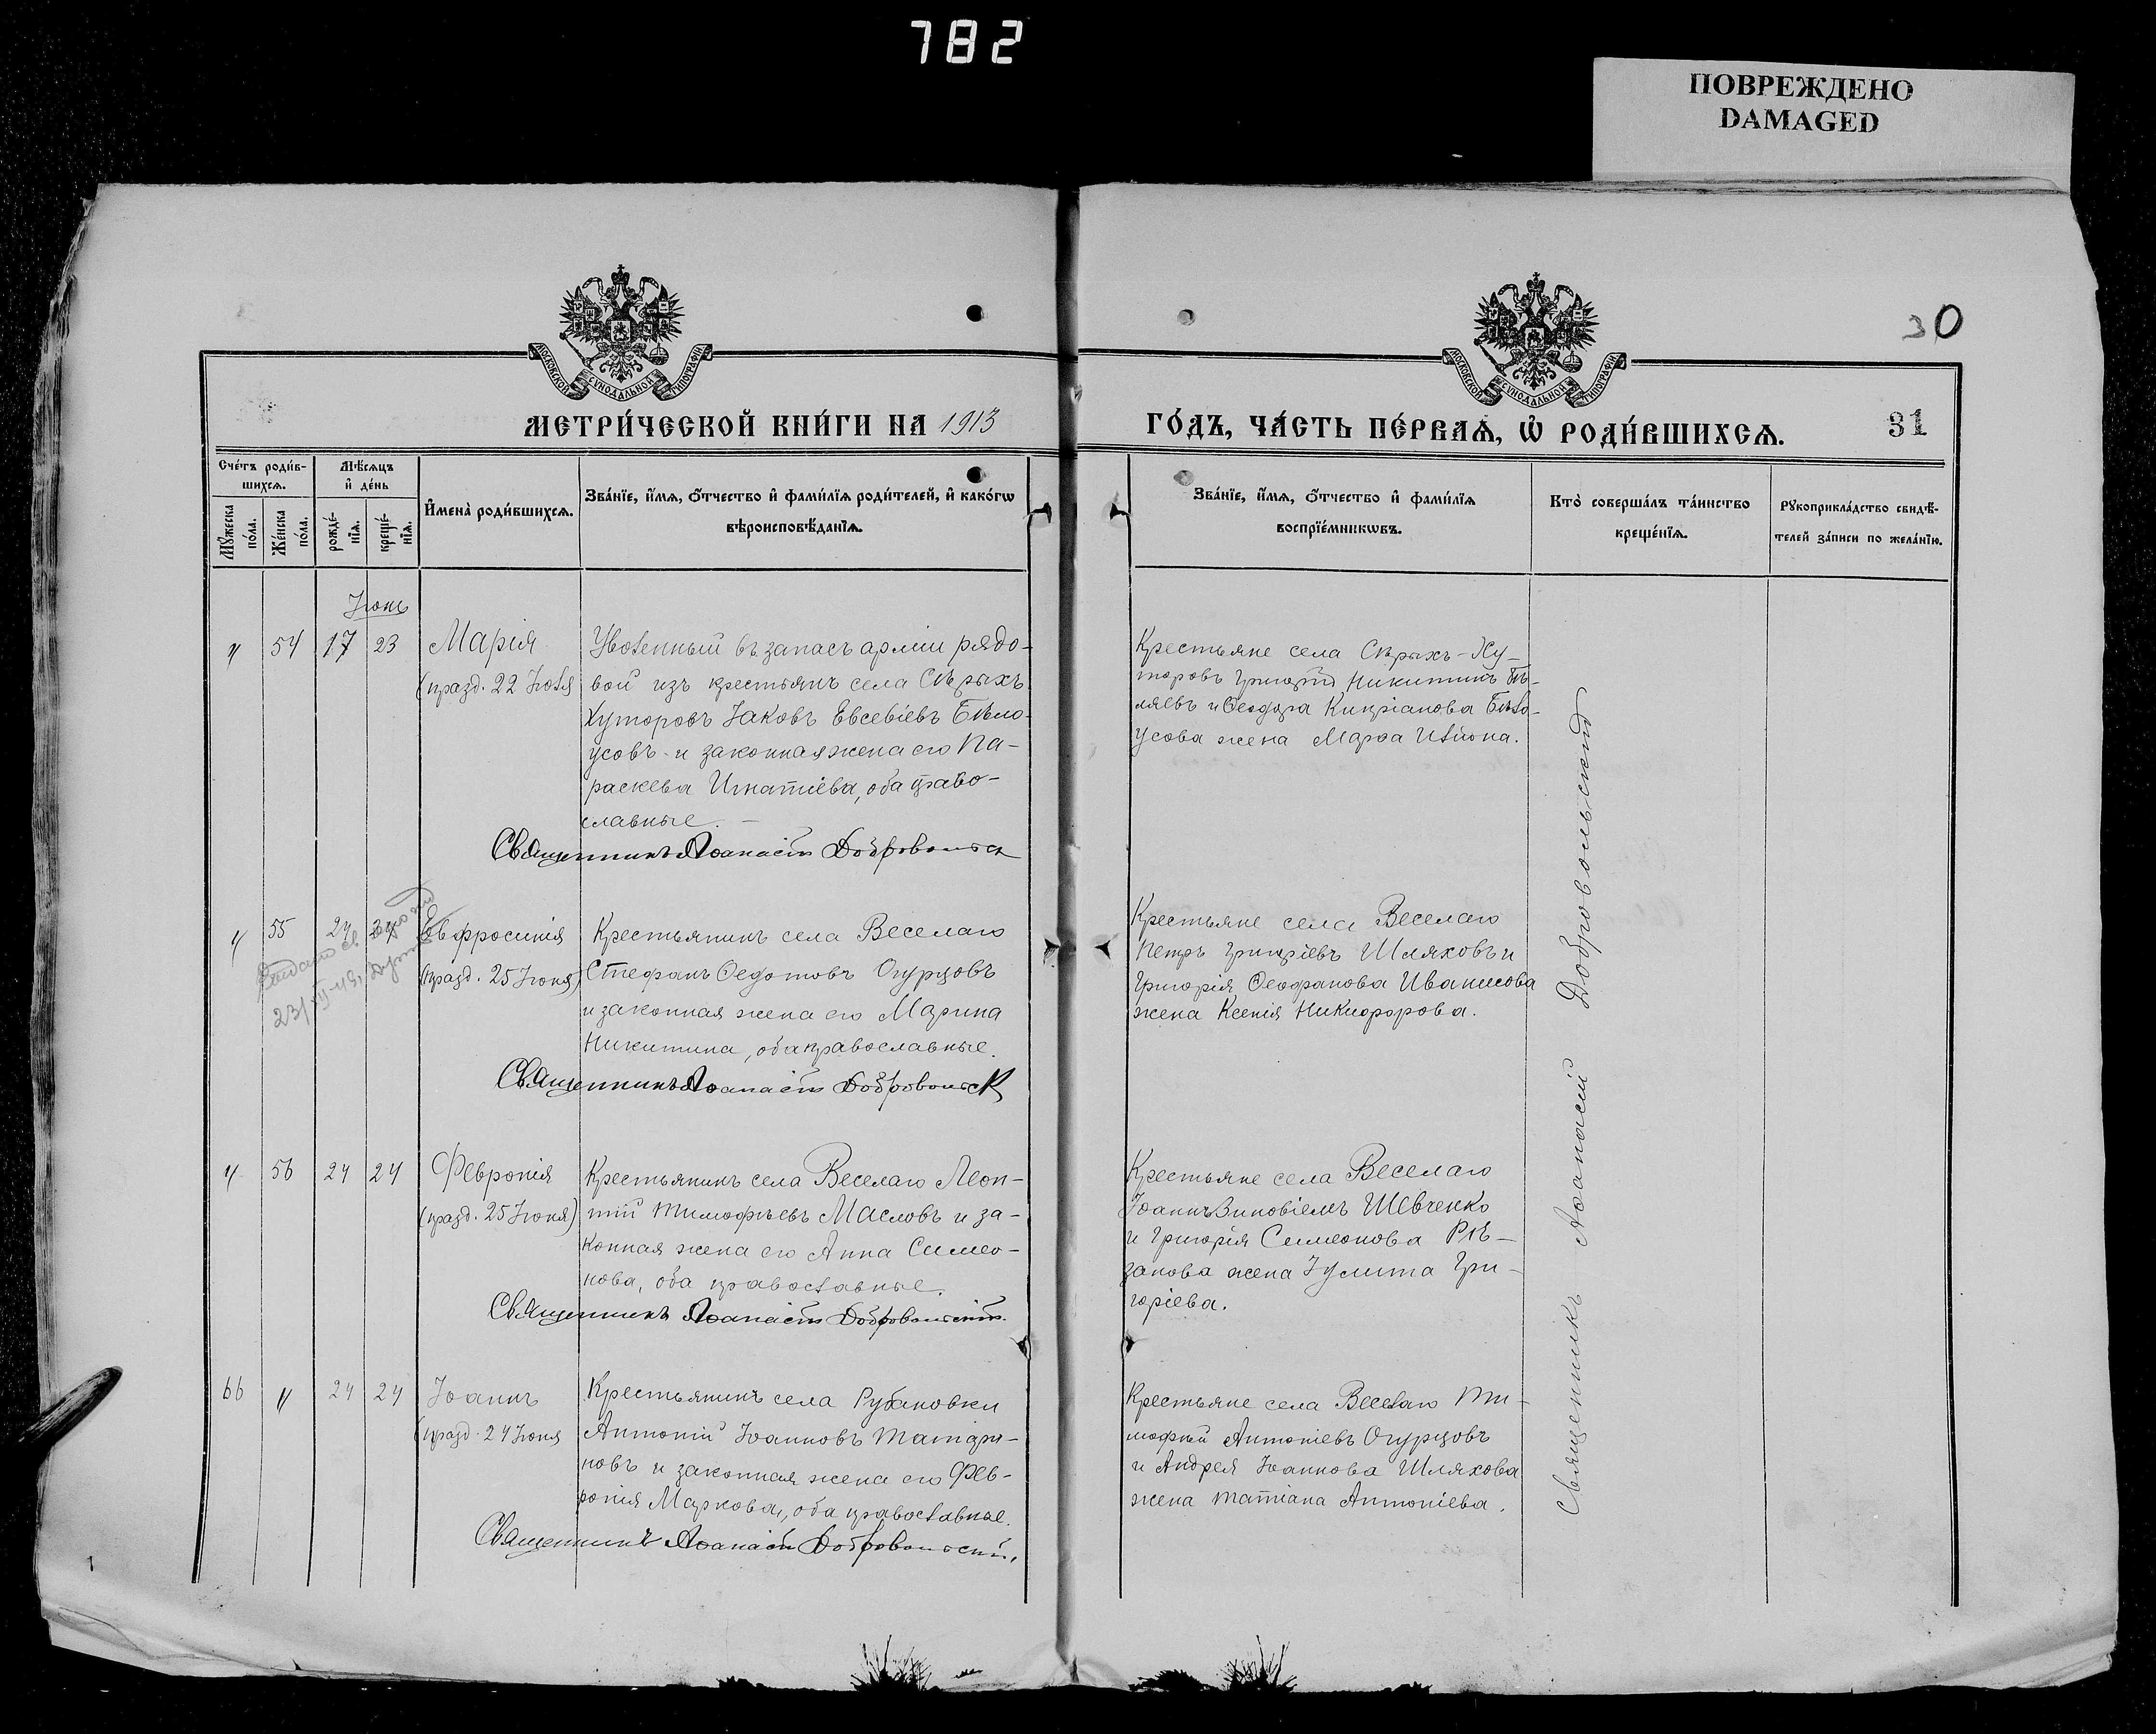 782
ПОВРЕЖДЕНО
DAMAGED
30
МОСКОВСКОЙ СѴНОДАЛЬНОЙ ТИПОГРАФІИ
МОСКОВСКОЙ СѴНОДАЛЬНОЙ ТИПОГРАФІИ
МЕТРИ́ЧЕСКОЙ КНИ́ГИ НА 1913
ГО́ДЪ, ЧА́СТЬ ПЕ́РВАѦ, Ѡ҆ РОДИ́ВШИХСѦ.
31
Сче́тъ роди́в-
шихсѧ.
Мѣ́сѧцъ
и҆ де́нь
Мꙋ́жеска
по́ла.
Же́нска
по́ла.
рожде́-
нїѧ.
креще́-
нїѧ.
И҆мена̀ роди́вшихсѧ.
Зва́нїе, и҆́мѧ, ѻ҆́тчество и҆ фами́лїѧ роди́телей, и҆ како́гѡ
вѣроисповѣ́данїѧ.
Зва́нїе, и҆́мѧ, ѻ҆́тчество и҆ фами́лїѧ
воспрїе́мникѡвъ.
Кто̀ соверша́лъ та́инство
креще́нїѧ.
Рꙋкоприкла́дство свидѣ́-
телей за́писи по жела́нїю.
Іюнь
" 54 17 23
Марія
(празд. 22 Іюля
Уволенный въ запасъ арміи рядо-
вой изъ крестьянъ села Сѣрыхъ
Хуторовъ Іаковъ Евсевіевъ Бѣло-
усовъ и законная жена его Па-
раскева Игнатіева, оба право-
славные. –
Священникъ Аѳанасій Добровольск
Крестьяне села Сѣрыхъ-Ху-
торовъ Григорій Никитинъ Бѣ-
ляевъ и Ѳеодора Кипріанова Бѣло-
усова жена Марѳа
" 55 24 24
Евфросинія
(празд. 25 Іюня)
Крестьянинъ села Веселаго
Стефанъ Ѳедотовъ Огурцовъ
и законная жена его Марина
Никитина, оба православные.
Священникъ Аѳанасій Добровольск
Крестьяне села Веселаго
Петръ Григоріевъ Шляховъ и
Григорія Ѳеофанова Иванисова
жена Ксенія Никифорова.
" 56 24 24
Февронія
(празд. 25 Іюня)
Крестьянинъ села Веселаго Леон-
тій Тимофѣевъ Масловъ и за-
конная жена его Анна Симео-
нова, оба православные.
Священникъ Аѳанасій Добровольскій.
Крестьяне села Веселаго
Іоаннъ Зиновіевъ Шевченко
и Григорія Симеонова Рѣ-
занова жена Іулита Гри-
горіева.
66 " 24 24
Іоаннъ
(празд. 24 Іюня
Крестьянинъ села Рубановки
Антоній Іоанновъ Татари-
новъ и законная жена его Фев-
ронія Маркова, оба православные.
Священникъ Аѳанасій Добровольскій.
Крестьяне села Веселаго Ти-
мофей Антоніевъ Огурцовъ
и Андрея Іоаннова Шляхова
жена Татіана Антоніева.
Священникъ Аѳанасій Добровольскій